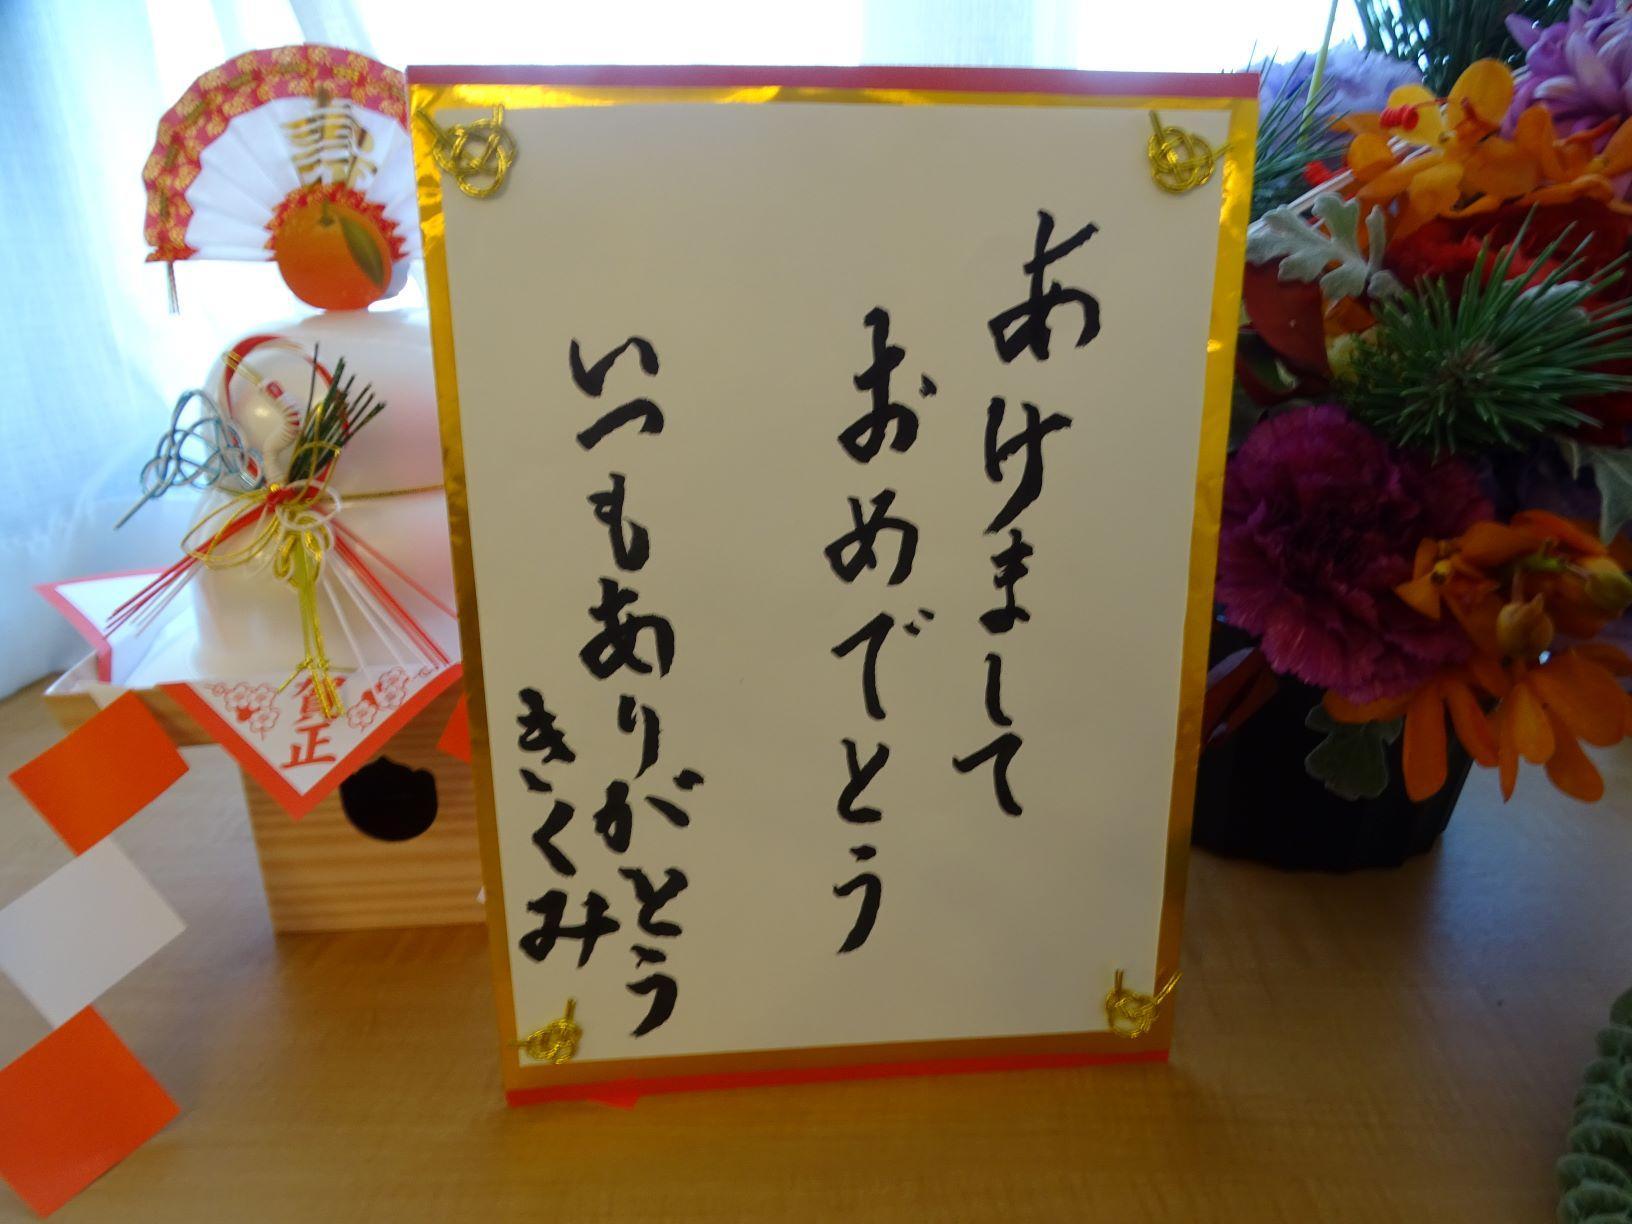 あけまして
おめでとう
いつもありがとう
きくみ
寿
賀正